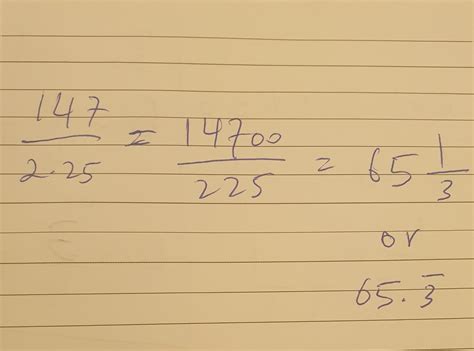 147/2.25 = 14700/225 = 65 1/3
or
65.3̅